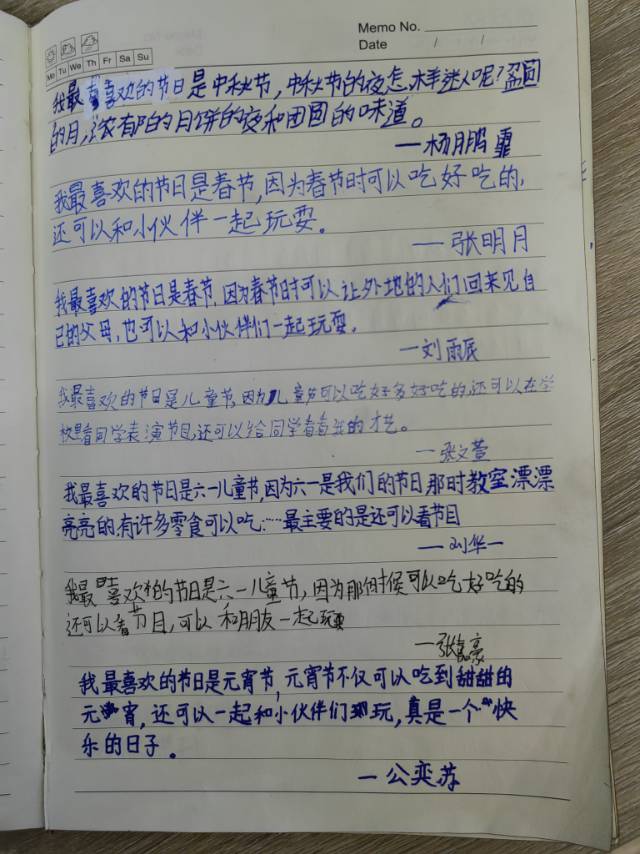 Memo No.
Mo Tu We Th Fr Sa Su
Date / /
我最喜欢的节日是中秋节，中秋节的夜怎样迷人呢？圆
的月，浓郁的月饼的夜和团圆的味道。
—杨鹏
我最喜欢的节日是春节，因为春节时可以吃好吃的，
还可以和小伙伴一起玩耍。
——张明月
我最喜欢的节日是春节，因为春节时可以让外地的人们回来见自
己的父母，也可以和小伙伴们一起玩耍。
—刘雨辰
我最喜欢的节日是儿童节，因为儿童节可以吃好多好吃的，还可以在学
校里看同学表演节目，还可以给同学看看我的才艺。
—张文萱
我最喜欢的节日是六一儿童节，因为六一是我们的节日那时教室漂漂
亮亮的，有许多零食可以吃……最主要的是还可以看节目
——刘华一
我最喜欢的节日是六一儿童节，因为那个时候可以吃好吃的
还可以看节目，可以和朋友一起玩耍
—张豪
我最喜欢的节日是元宵节，元宵节不仅可以吃到甜甜的
元宵，还可以一起和小伙伴们玩，真是一个快
乐的日子。
—公奕苏